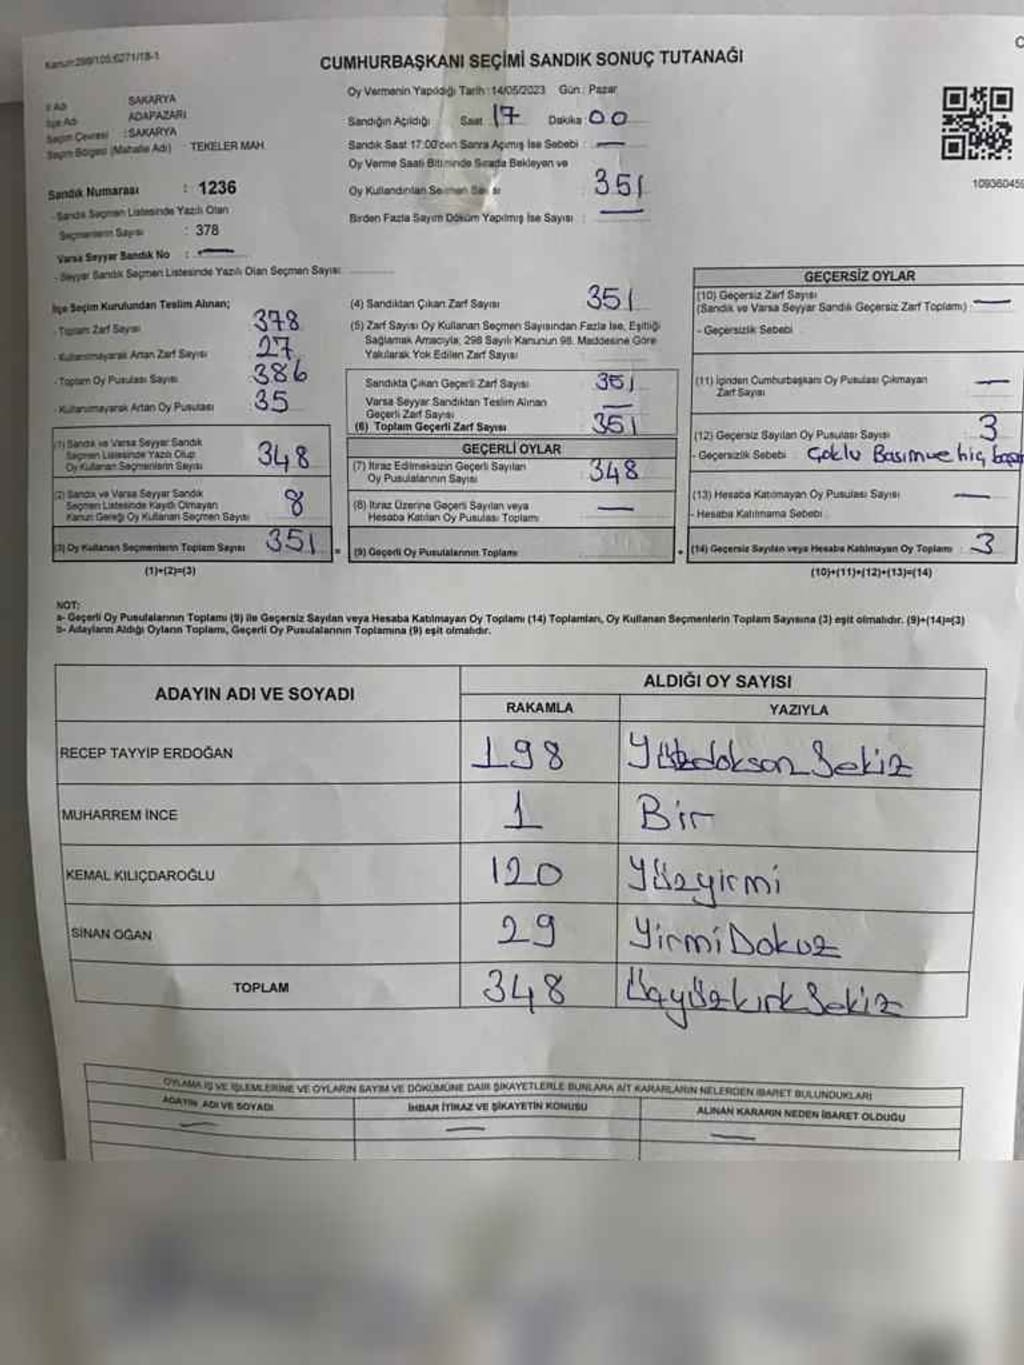 Kanun:298/105;6271/18-1
CUMHURBAŞKANI SEÇİMİ SANDIK SONUÇ TUTANAĞI
İl Adı SAKARYA
İlçe Adı ADAPAZARI
Seçim Çevresi : SAKARYA
Seçim Bölgesi (Mahalle Adı) TEKELER MAH.
Sandık Numarası : 1236
- Sandık Seçmen Listesinde Yazılı Olan
Seçmenlerin Sayısı : 378
Varsa Seyyar Sandık No : —
- Seyyar Sandık Seçmen Listesinde Yazılı Olan Seçmen Sayısı:
Oy Vermenin Yapıldığı Tarih : 14/05/2023 Gün : Pazar
Sandığın Açıldığı Saat : 17 Dakika : 00
Sandık Saat 17:00'den Sonra Açılmış İse Sebebi : —
Oy Verme Saati Bitiminde Sırada Bekleyen ve
Oy Kullandırılan Seçmen Sayısı 351
Birden Fazla Sayım Döküm Yapılmış İse Sayısı : —
109360459
İlçe Seçim Kurulundan Teslim Alınan;
- Toplam Zarf Sayısı 378
- Kullanılmayarak Artan Zarf Sayısı 27
- Toplam Oy Pusulası Sayısı 386
- Kullanılmayarak Artan Oy Pusulası 35
(1) Sandık ve Varsa Seyyar Sandık
Seçmen Listesinde Yazılı Olup
Oy Kullanan Seçmenlerin Sayısı 348
(2) Sandık ve Varsa Seyyar Sandık
Seçmen Listesinde Kayıtlı Olmayan
Kanun Gereği Oy Kullanan Seçmen Sayısı 8
(3) Oy Kullanan Seçmenlerin Toplam Sayısı 351 =
(1)+(2)=(3)
(4) Sandıktan Çıkan Zarf Sayısı 351
(5) Zarf Sayısı Oy Kullanan Seçmen Sayısından Fazla İse, Eşitliği
Sağlamak Amacıyla, 298 Sayılı Kanunun 98. Maddesine Göre
Yakılarak Yok Edilen Zarf Sayısı
Sandıkta Çıkan Geçerli Zarf Sayısı 351
Varsa Seyyar Sandıktan Teslim Alınan
Geçerli Zarf Sayısı —
(6) Toplam Geçerli Zarf Sayısı 351
GEÇERLİ OYLAR
(7) İtiraz Edilmeksizin Geçerli Sayılan
Oy Pusulalarının Sayısı 348
(8) İtiraz Üzerine Geçerli Sayılan veya
Hesaba Katılan Oy Pusulası Toplamı —
(9) Geçerli Oy Pusulalarının Toplamı +
GEÇERSİZ OYLAR
(10) Geçersiz Zarf Sayısı
(Sandık ve Varsa Seyyar Sandık Geçersiz Zarf Toplamı) —
- Geçersizlik Sebebi
(11) İçinden Cumhurbaşkanı Oy Pusulası Çıkmayan
Zarf Sayısı —
(12) Geçersiz Sayılan Oy Pusulası Sayısı 3
- Geçersizlik Sebebi : Çoklu Basım ve hiç
(13) Hesaba Katılmayan Oy Pusulası Sayısı —
- Hesaba Katılmama Sebebi
(14) Geçersiz Sayılan veya Hesaba Katılmayan Oy Toplamı : 3
(10)+(11)+(12)+(13)=(14)
NOT:
a- Geçerli Oy Pusulalarının Toplamı (9) ile Geçersiz Sayılan veya Hesaba Katılmayan Oy Toplamı (14) Toplamları, Oy Kullanan Seçmenlerin Toplam Sayısına (3) eşit olmalıdır. (9)+(14)=(3)
b- Adayların Aldığı Oyların Toplamı, Geçerli Oy Pusulalarının Toplamına (9) eşit olmalıdır.
ADAYIN ADI VE SOYADI ALDIĞI OY SAYISI
RAKAMLA YAZIYLA
RECEP TAYYİP ERDOĞAN 198 Yüzdoksan Sekiz
MUHARREM İNCE 1 Bir
KEMAL KILIÇDAROĞLU 120 Yüzyirmi
SİNAN OĞAN 29 Yirmi Dokuz
TOPLAM 348 Üçyüzkırk Sekiz
OYLAMA İŞ VE İŞLEMLERİNE VE OYLARIN SAYIM VE DÖKÜMÜNE DAİR ŞİKAYETLERLE BUNLARA AİT KARARLARIN NELERDEN İBARET BULUNDUKLARI
ADAYIN ADI VE SOYADI İHBAR İTİRAZ VE ŞİKAYETİN KONUSU ALINAN KARARIN NEDEN İBARET OLDUĞU
— — —